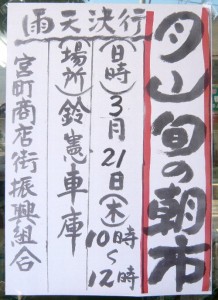 月山旬の朝市
雨天決行
(日時)3月21日(木)10時～12時
(場所)鈴憲車庫
宮町商店街振興組合